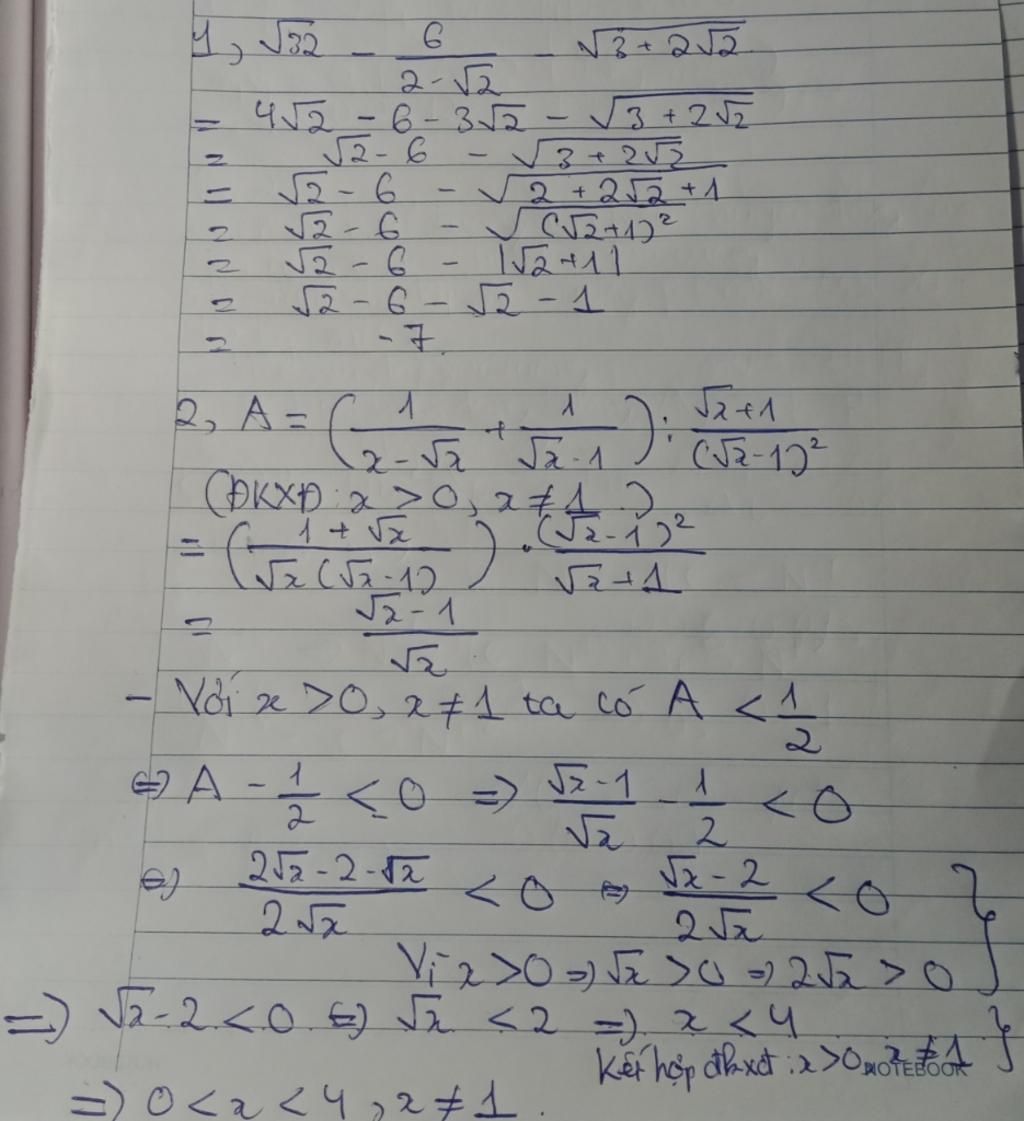 1, √32 - 6/(2-√2) - √(3+2√2)
= 4√2 - 6 - 3√2 - √(3+2√2)
= √2 - 6 - √(3+2√2)
= √2 - 6 - √(2+2√2+1)
= √2 - 6 - √((√2+1)²)
= √2 - 6 - |√2+1|
= √2 - 6 - √2 - 1
= -7
2, A = (1/(x-√x) + 1/(√x-1)) : (√x+1)/((√x-1)²)
(ĐKXĐ: x > 0, x ≠ 1)
= ((1+√x)/(√x(√x-1))) . ((√x-1)²)/(√x+1)
= (√x-1)/√x
- Với x > 0, x ≠ 1 ta có A < 1/2
⇔ A - 1/2 < 0 ⇒ (√x-1)/√x - 1/2 < 0
⇔ (2√x-2-√x)/(2√x) < 0 ⇔ (√x-2)/(2√x) < 0 }
Vì x > 0 ⇒ √x > 0 ⇒ 2√x > 0
⇒ √x - 2 < 0 ⇔ √x < 2 ⇒ x < 4 }
Kết hợp đkxđ: x > 0, x ≠ 1
NOTEBOOK
⇒ 0 < x < 4, x ≠ 1.